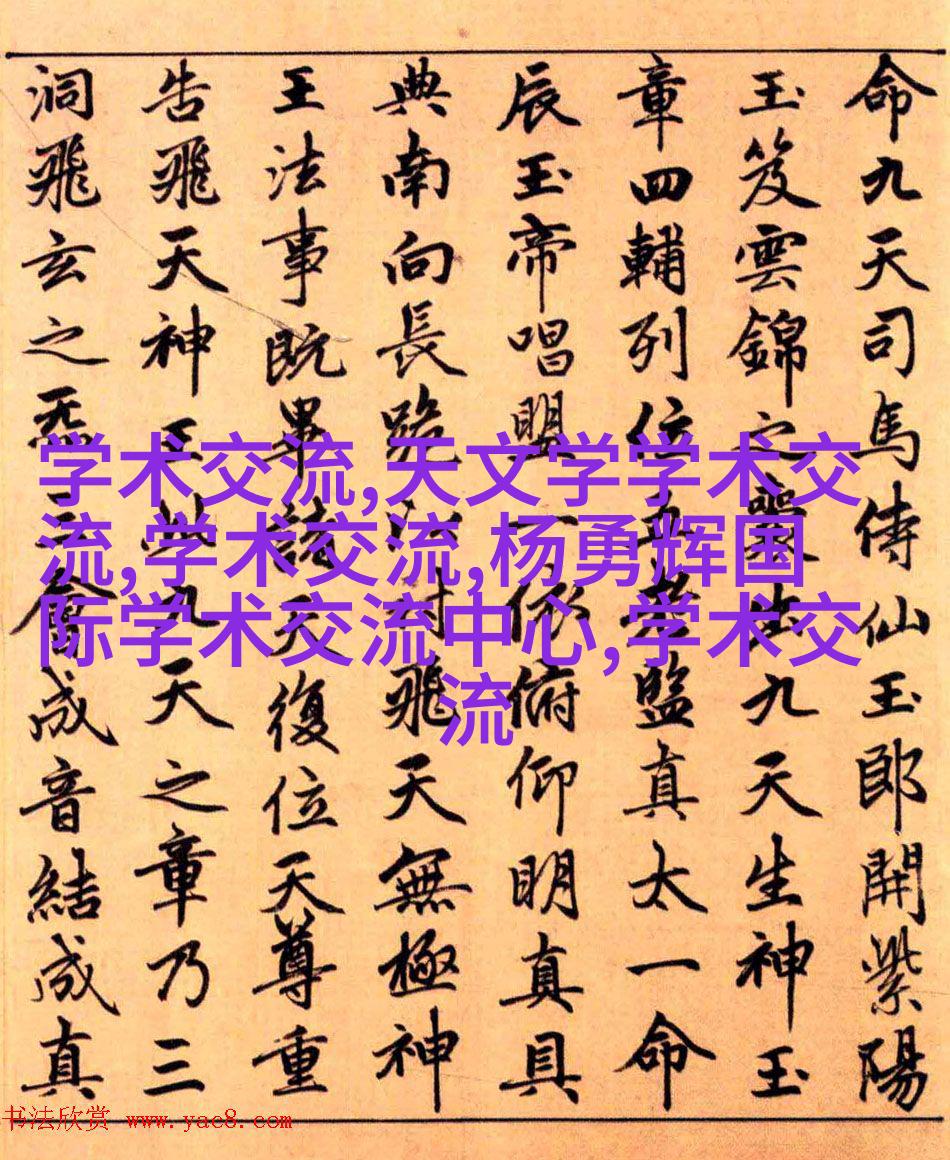 命九天司馬侍仙玉郎開紫陽
玉笈雲錦之囊出九天生神玉
章四輔列位五老監真太一命
辰玉帝唱盟一依俯仰明真具
典南向長跪以付飛天無極神
王法事既畢諸天復位天尊重
告飛天神王此九天之章乃三
洞飛玄之炁三合成音結成真
学术交流,天文学学术交
流,学术交流,杨勇辉国
际学术交流中心,学术交
流
书法欣赏 www.yac8.com